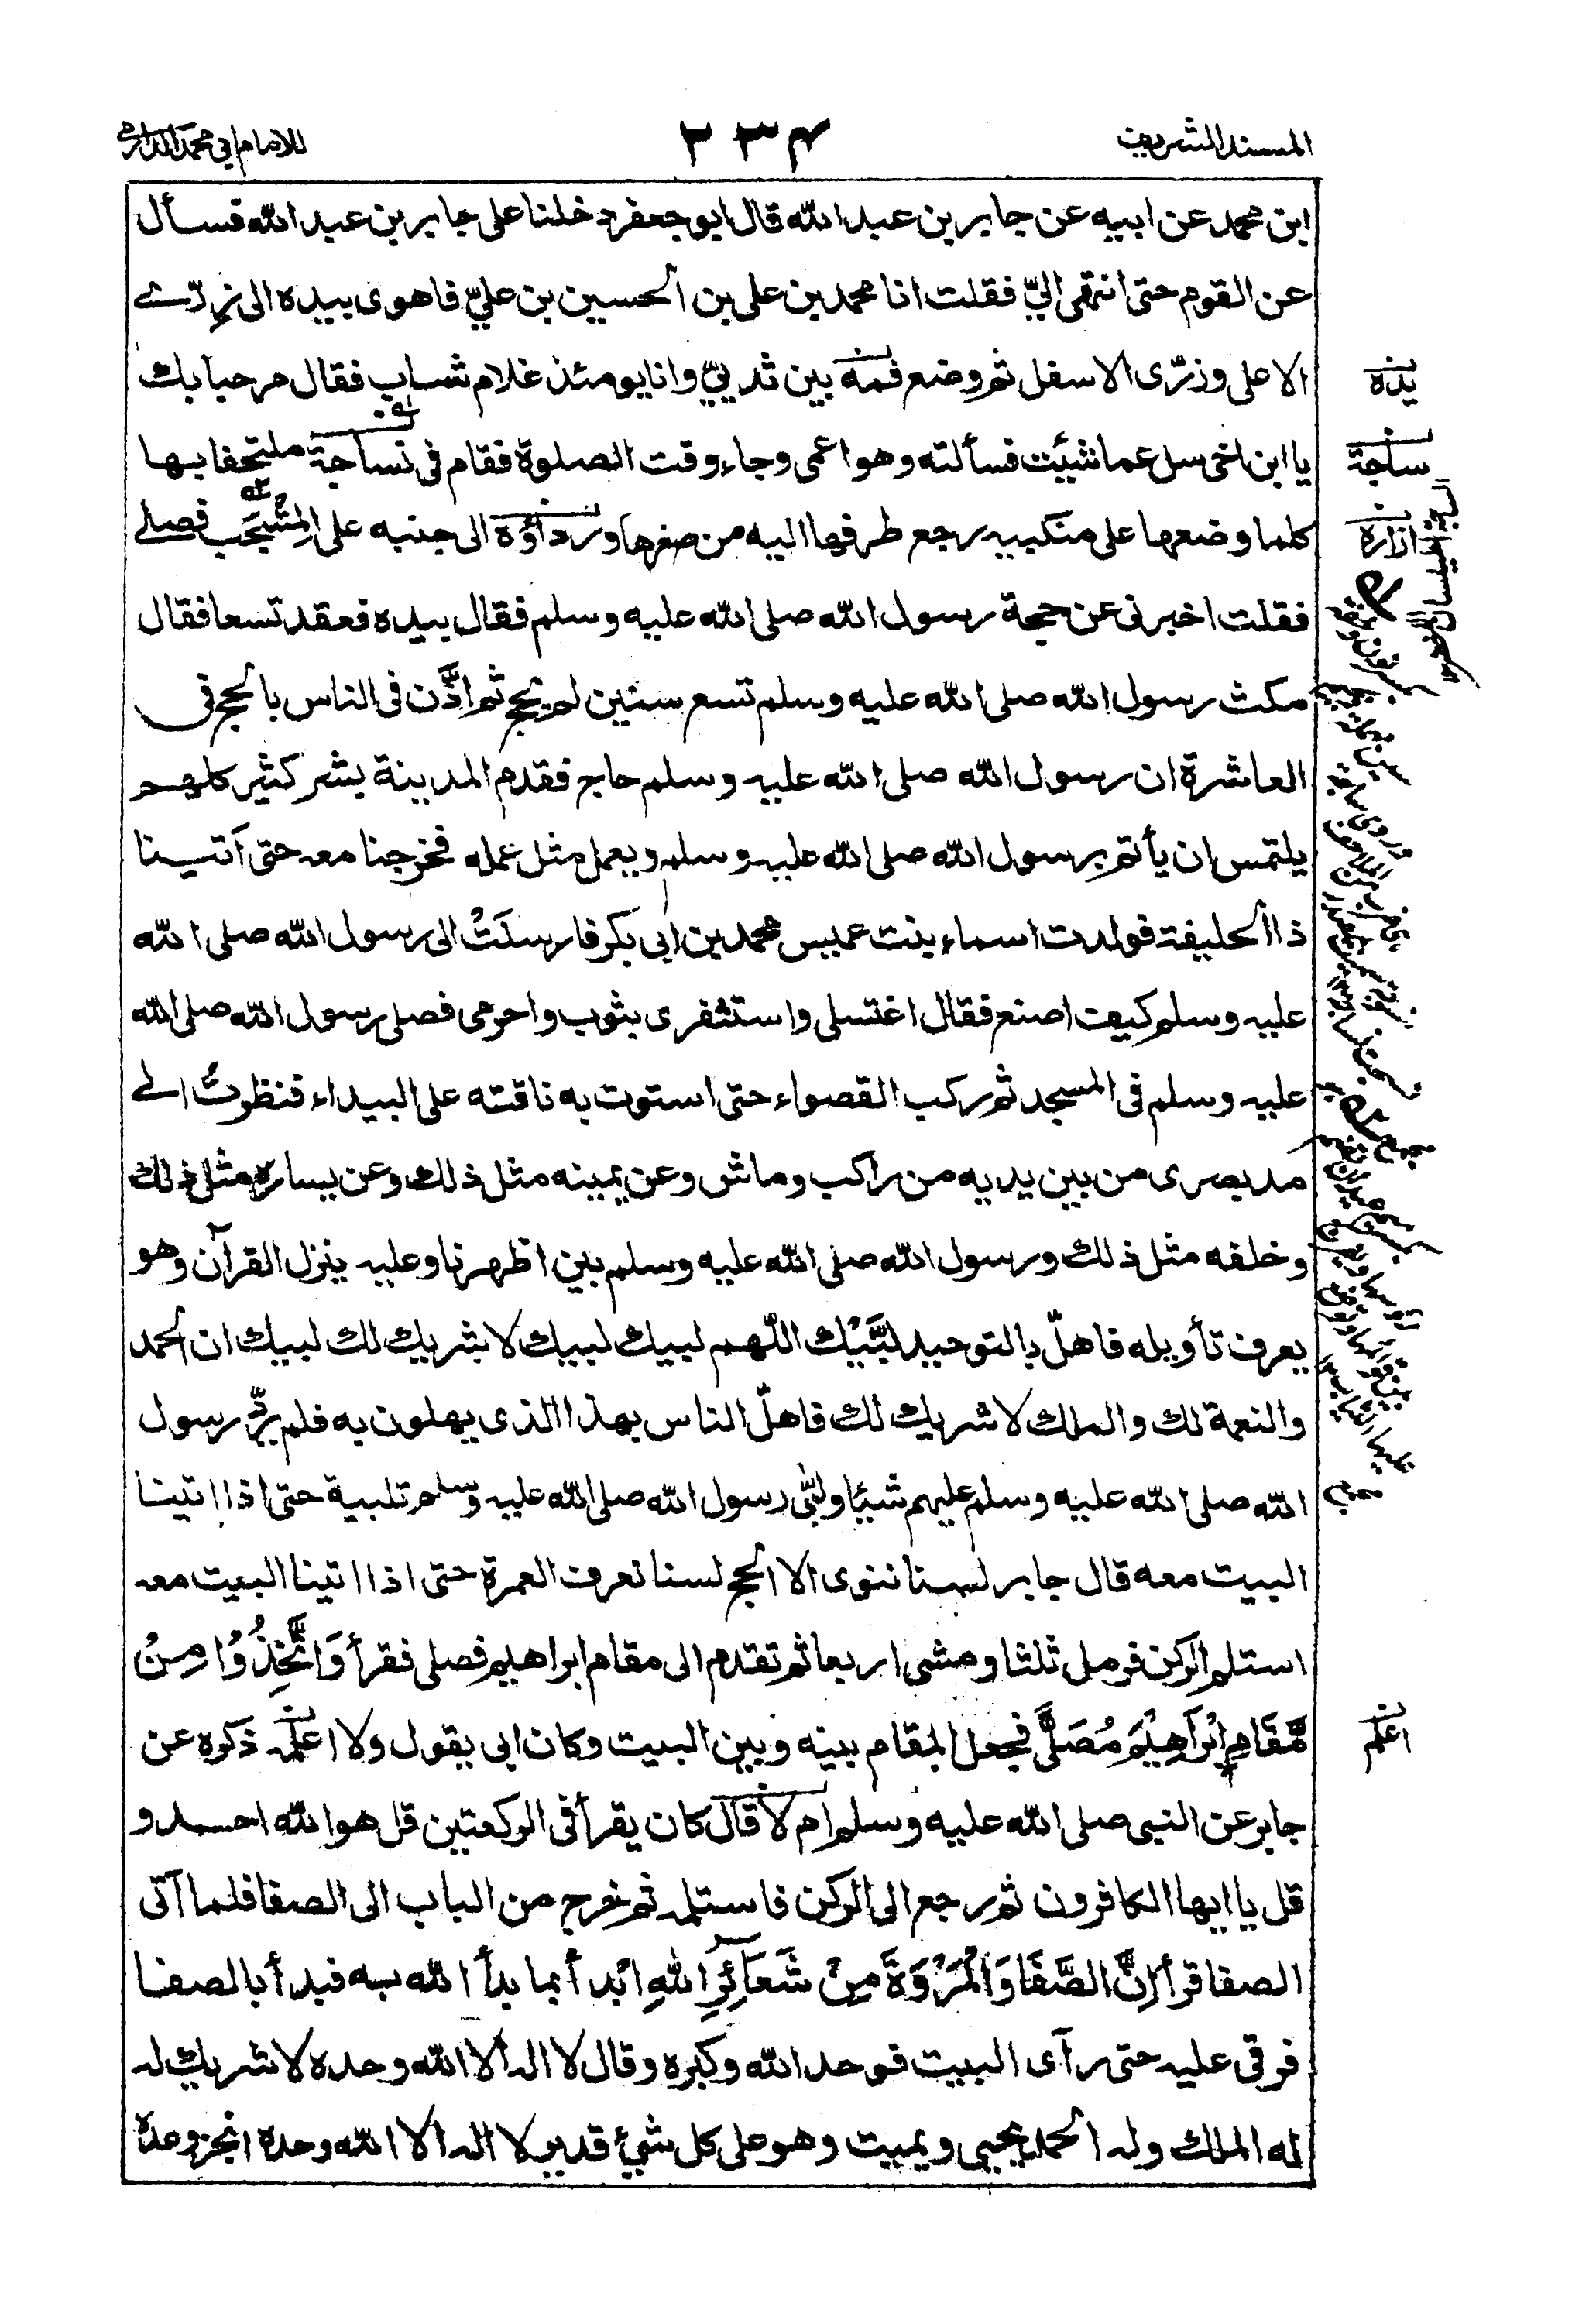 المسند الشريف
٢٣٤
للامام ابي محمد الدارمي
ابن محمد عن ابيه عن جابر بن عبد الله قال ابو جعفر دخلنا على جابر بن عبد الله فسأل
عن القوم حتى انتهى اليّ فقلت انا محمد بن على بن الحسين بن عليّ فاهوى بيده الى زرّے
الاعلى وزرّى الاسفل ثم وضع فمه بين ثدييّ وانا يومئذ غلام شاب فقال مرحبا بك
يا ابن اخى سل عما شئت فسألته وهو اعمى وجاء وقت الصلوة فقام فى نساجة ملتحفا بها
كلما وضعها على منكبيه رجع طرفها اليه من صغرها ورداؤه الى جنبه على المِشْجَب فصلے
فقلت اخبرنى عن حجة رسول الله صلى الله عليه وسلم فقال بيده فعقد تسعا فقال
مكث رسول الله صلى الله عليه وسلم تسع سنين لم يحج ثم اذّن فى الناس بالحج فى
العاشرة ان رسول الله صلى الله عليه وسلم حاج فقدم المدينة بشر كثير كلهم
يلتمس ان يأتم برسول الله صلى الله عليه وسلم ويعمل مثل عمله فخرجنا معه حتى أتينا
ذا الحليفة فولدت اسماء بنت عميس محمد بن ابى بكر فارسلَتْ الى رسول الله صلى الله
عليه وسلم كيف اصنع فقال اغتسلى واستثفرى بثوب واحرمى فصلى رسول الله صلى الله
عليه وسلم فى المسجد ثم ركب القصواء حتى استوت به ناقته على البيداء فنظرتُ الے
مد بصرى من بين يديه من راكب وماش وعن يمينه مثل ذلك وعن يساره مثل ذلك
وخلفه مثل ذلك ورسول الله صلى الله عليه وسلم بين اظهرنا وعليه ينزل القرآن وهو
يعرف تأويله فاهلّ بالتوحيد لبَّيْك اللّهم لبيك لبيك لا شريك لك لبيك ان الحمد
والنعمة لك والملك لا شريك لك فاهلّ الناس بهذا الذى يهلون به فلم يردّ رسول
الله صلى الله عليه وسلم عليهم شيئا ولبّى رسول الله صلى الله عليه وسلم تلبية حتى اذا اتينا
البيت معه قال جابر لسنا ننوى الا الحج لسنا نعرف العمرة حتى اذا اتينا البيت معه
استلم الركن فرمل ثلثا ومشى اربعا ثم تقدم الى مقام ابراهيم فصلى فقرأ وَاتَّخِذُوْا مِنْ
مَّقَامِ اِبْرَاهِيْمَ مُصَلًّى فجعل المقام بينه وبين البيت وكان ابى يقول ولا اعلمه ذكره عن
جابر عن النبى صلى الله عليه وسلم ام لا قال كان يقرأ فى الركعتين قل هو الله احد و
قل يا ايها الكافرون ثم رجع الى الركن فاستلمه ثم خرج من الباب الى الصفا فلما أتى
الصفا قرأ اِنَّ الصَّفَا وَالْمَرْوَةَ مِنْ شَعَآئِرِ اللهِ ابْدأ بما بدأ الله به فبدأ بالصفا
فرقى عليه حتى رآى البيت فوحد الله وكبره وقال لا اله الا الله وحده لا شريك له
له الملك وله الحمد يحيى ويميت وهو على كل شيئ قدير لا اله الا الله وحده انجز وعده
يده
ساجة
ازاره
اعلم